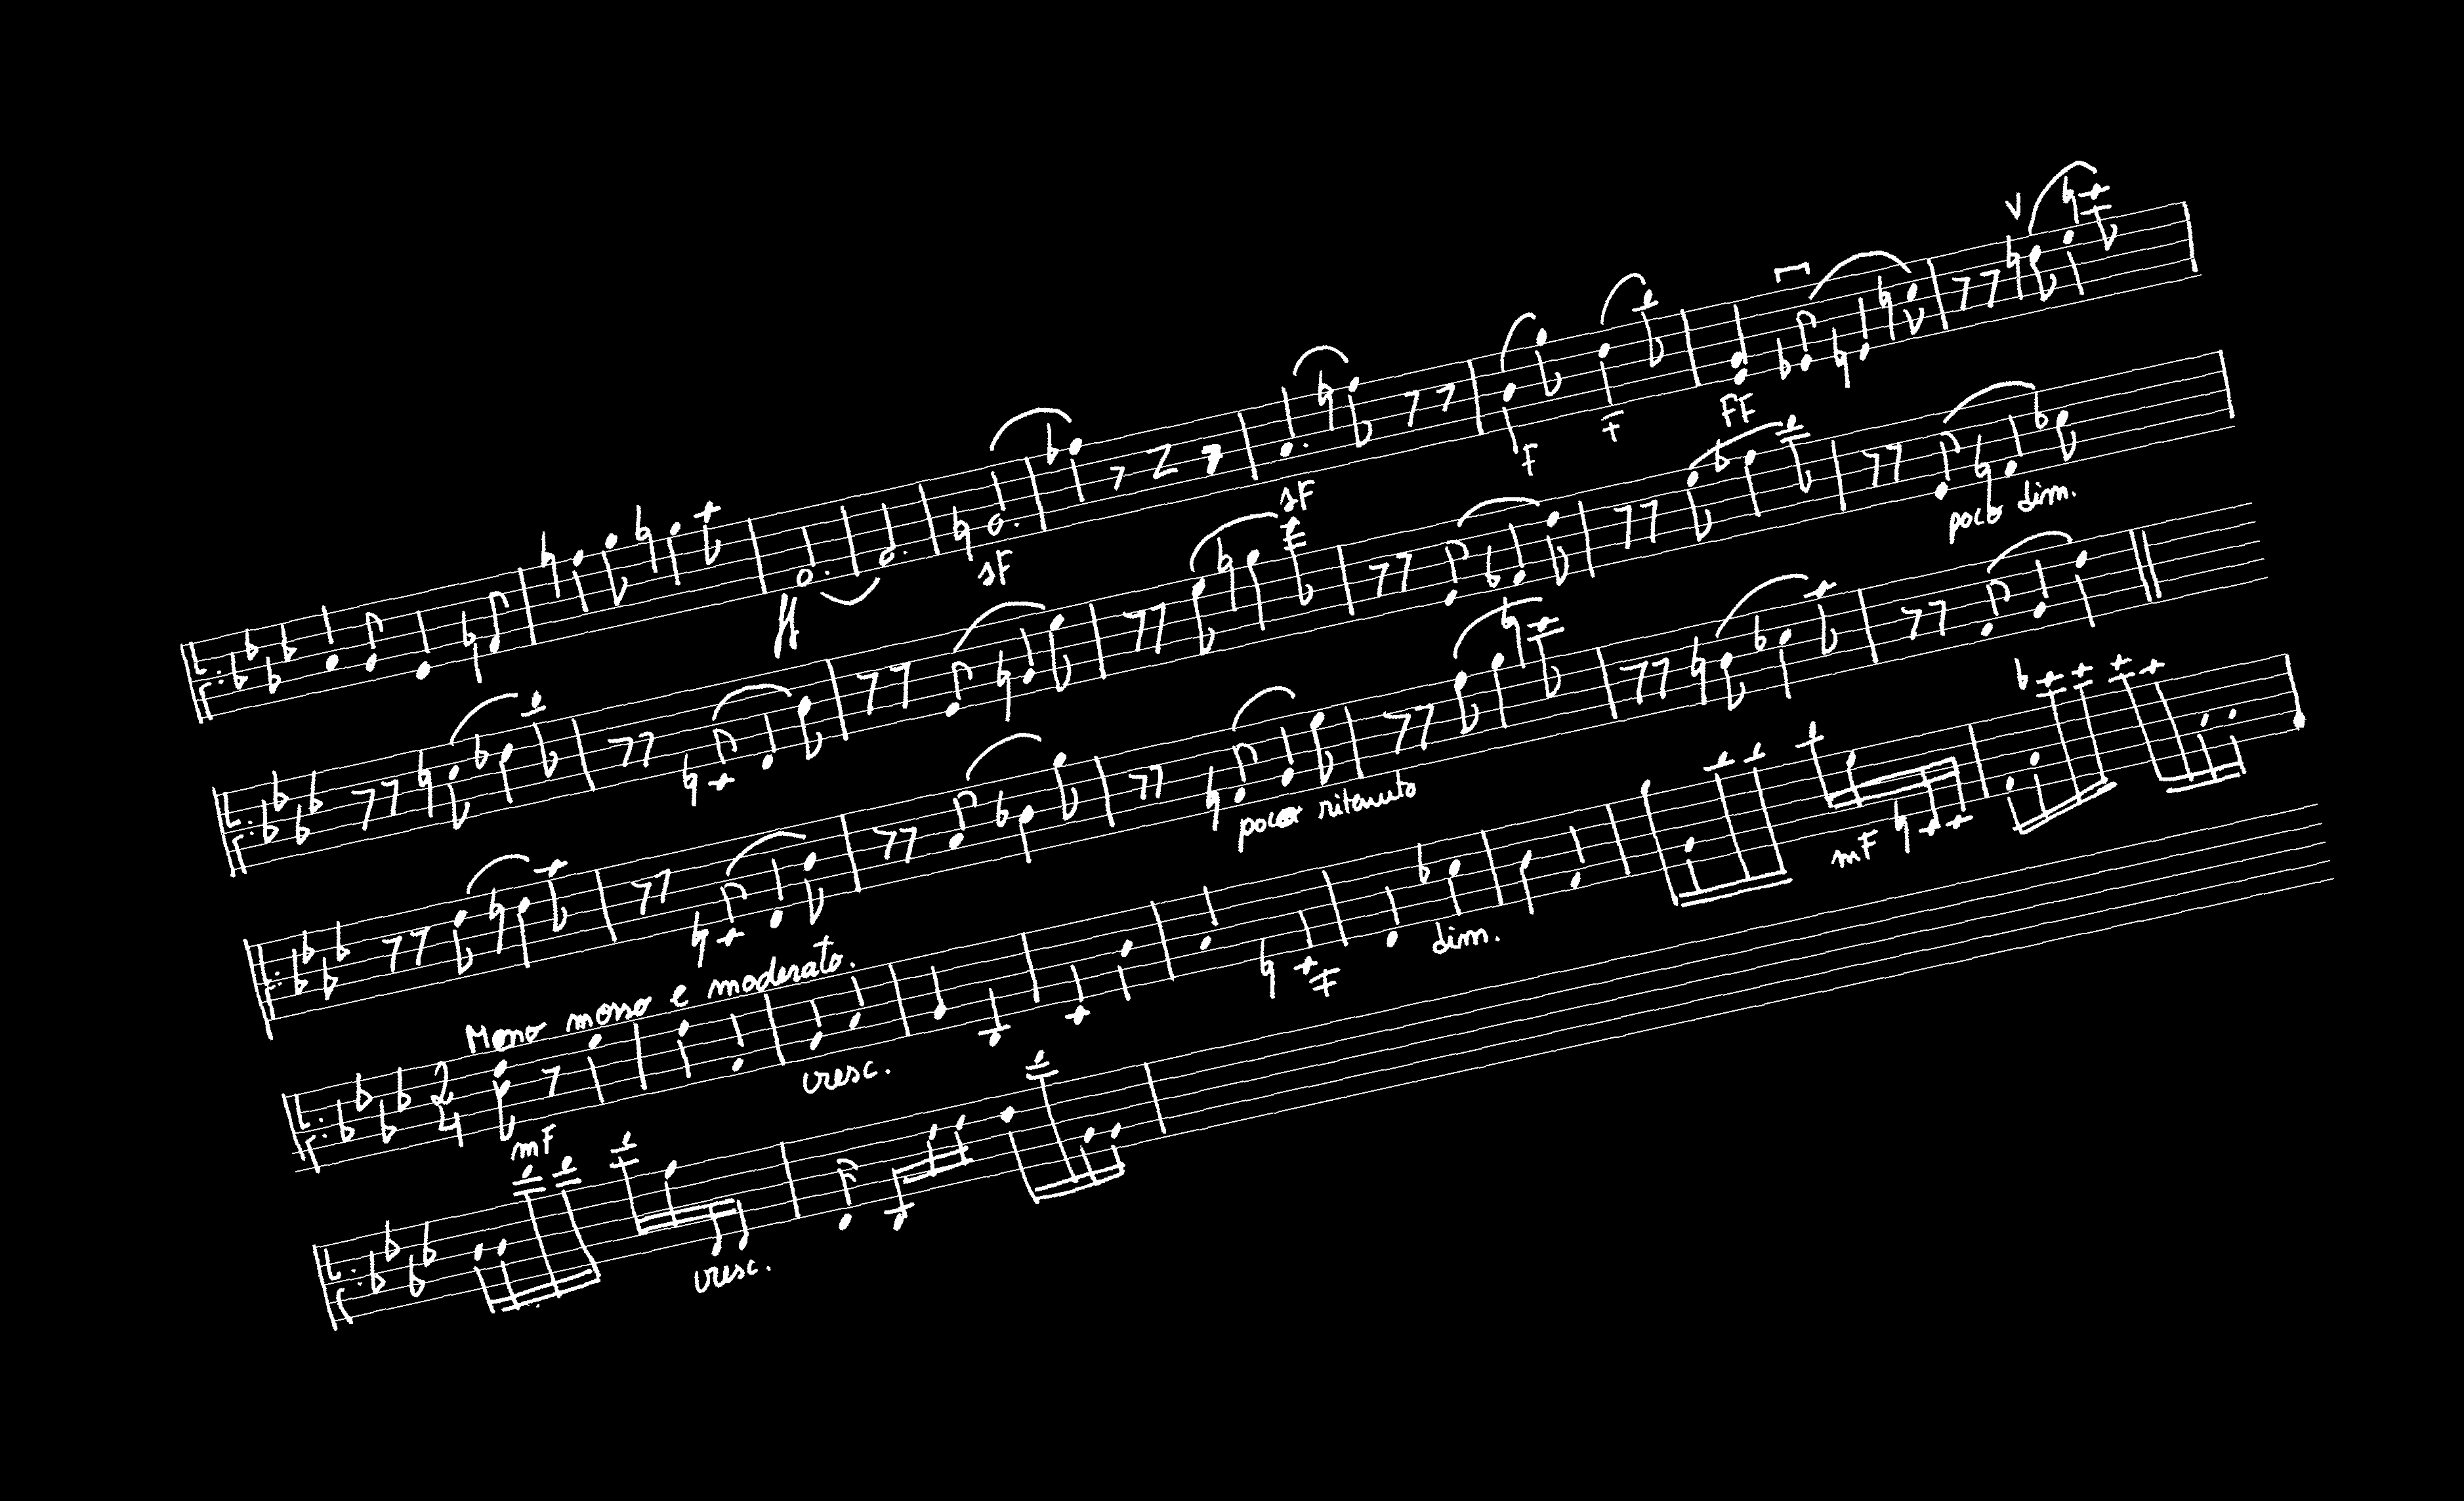 sf
sf
F
F
FF
poco dim.
poco ritenuto
Meno mosso e moderato.
mF
cresc.
F
dim.
mF
2
4
cresc.